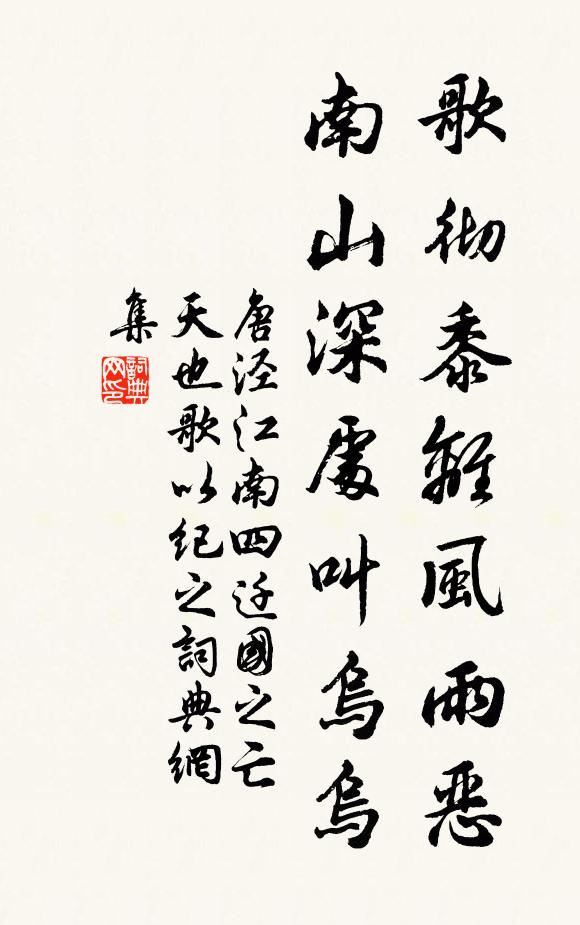 歌彻黍離風雨惡
南山深處叫烏烏
唐泾江南四迁國之亡
天也歌以紀之詞典網
集
詞典
网印